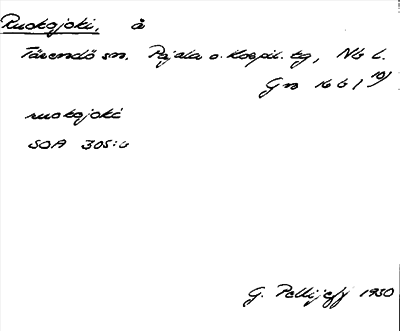 Ruokojoki, å
Tärendö sn. Pajala o. Korpil. tg, Nb l.
Gn 16 b 1
ruokojoki
SOA 305:4
G. Pellijeff 1950